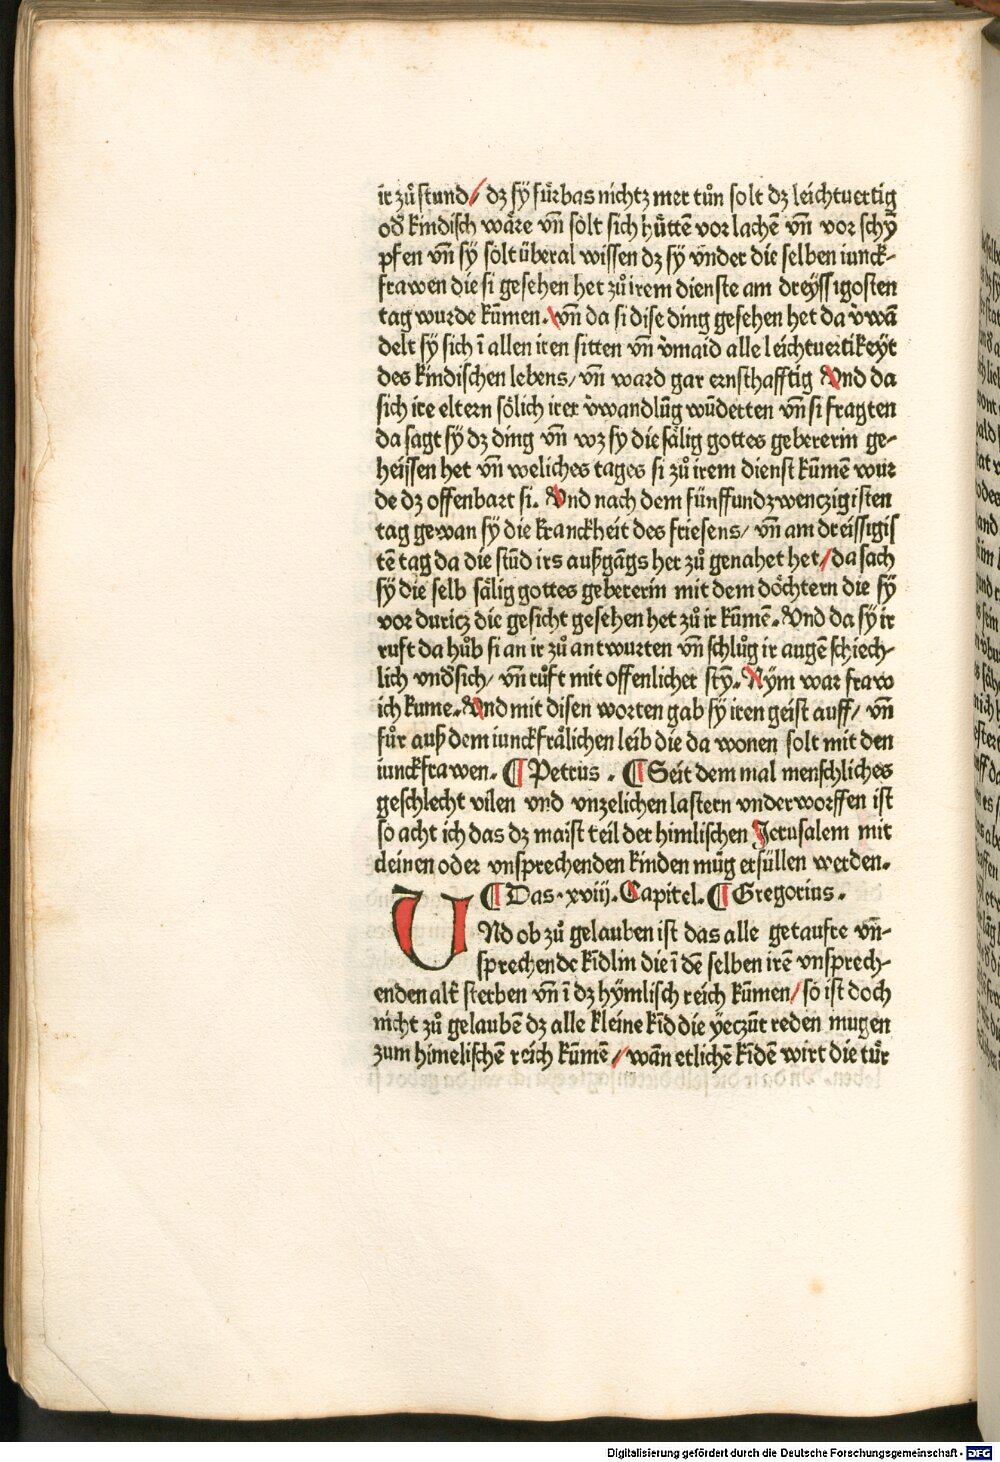 ir zuͦ stund/ dz sÿ fúrbas nichtz mer tuͦn solt dz leichtuertig
od̄ kindisch wäre vn̄ solt sich hütte̅ vor lache̅ vn̄ vor schÿ̅
pfen vn̄ sÿ solt überal wissen dz sÿ vnder die selben iunck⸗
frawen die si gesehen het zuͦ irem dienste am dreÿssigosten
tag wurde ku̅men. vn̄ da si dise ding gesehen het da v̓wa̅
delt sÿ sich i̅ allen iren sitten vn̄ v̓maid alle leichtuertikeÿt
des kindischen lebens/ vn̄ ward gar ernsthafftig Vnd da
sich ire eltern sölich irer v̓wandlu̅g wu̅derten vn̄ si fragten
da sagt sÿ dz ding vn̄ wz sy die sälig gottes gebererin ge⸗
heissen het vn̄ weliches tages si zuͦ irem dienst ku̅me̅ wur
de dz offenbart si. Vnd nach dem fünffundzwenczigisten
tag gewan sÿ die kranckheit des friesens/ vn̄ am dreissigis
te̅ tag da die stu̅d irs außga̅gs her zuͦ genahet het/ da sach
sÿ die selb sälig gottes gebererin mit dem döchtern die sÿ
vor duricz die gesicht gesehen het zuͦ ir ku̅me̅. Vnd da sÿ ir
ruft da huͦb si an ir zuͦ antwurten vn̄ schluͦg ir auge̅ schiech⸗
lich vnd̄sich/ vn̄ ruͦft mit offenlicher sty̅. Nÿm war fraw
ich kume. Vnd mit disen worten gab sÿ iren geist auff/ vn̄
fuͦr auß dem iunckfrälichen leib die da wonen solt mit den
iunckfrawen. ¶ Petrus. ¶ Seit dem mal menschliches
geschlecht vilen vnd vnzelichen lastern vnderworffen ist
so acht ich das dz maist teil der himlischen Jerusalem mit
cleinen oder vnsprechenden kinden müg erfüllen werden.
¶ Das. xviij. Capitel. ¶ Gregorius.
UNd ob zuͦ gelauben ist das alle getaufte vn̄⸗
sprechende ki̅dlin die i̅ de̅ selben ire̅ vnsprech⸗
enden alt̓ sterben vn̄ i̅ dz hÿmlisch reich ku̅men/ so ist doch
nicht zuͦ gelaube̅ dz alle kleine ki̅d die ÿeczu̅t reden mugen
zum himelische̅ reich ku̅me̅/ wa̅n etliche̅ ki̅de̅ wirt die tür
Digitalisierung gefördert durch die Deutsche Forschungsgemeinschaft - DFG